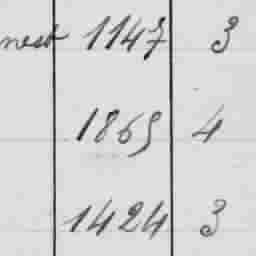 nest 1147 3
1869 4
1424 3